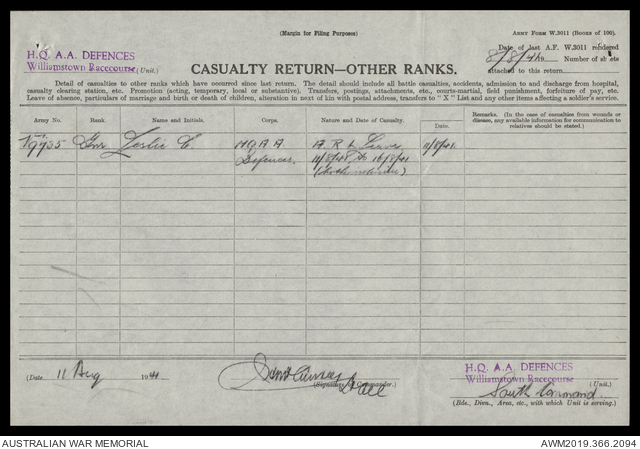 (Margin for Filing Purposes)
ARMY FORM W.3011 (BOOKS OF 100).
H.Q. A.A. DEFENCES
Williamstown Racecourse (Unit.)
Date of last A.F. W.3011 rendered
8/8/41 Number of sheets
attached to this return
CASUALTY RETURN—OTHER RANKS.
Detail of casualties to other ranks which have occurred since last return. The detail should include all battle casualties, accidents, admission to and discharge from hospital,
casualty clearing station, etc. Promotion (acting, temporary, local or substantive). Transfers, postings, attachments, etc., courts-martial, field punishment, forfeiture of pay, etc.
Leave of absence, particulars of marriage and birth or death of children, alteration in next of kin with postal address, transfers to "X" List and any other items affecting a soldier's service.
Army No. Rank. Name and Initials. Corps. Nature and Date of Casualty. Date. Remarks. (In the case of casualties from wounds or
disease, any available information for communication to
relatives should be stated.)
Gnr Leslie C. HQ A A A. R L Leave 11/8/41.
Defences. 11/8/41 to 16/8/41
(Date 11 Aug 1941
(Signature of Commander.)
H.Q. A.A. DEFENCES
Williamstown Racecourse (Unit.)
South Command
(Bde., Divn., Area, etc., with which Unit is serving.)
AUSTRALIAN WAR MEMORIAL
AWM2019.366.2094